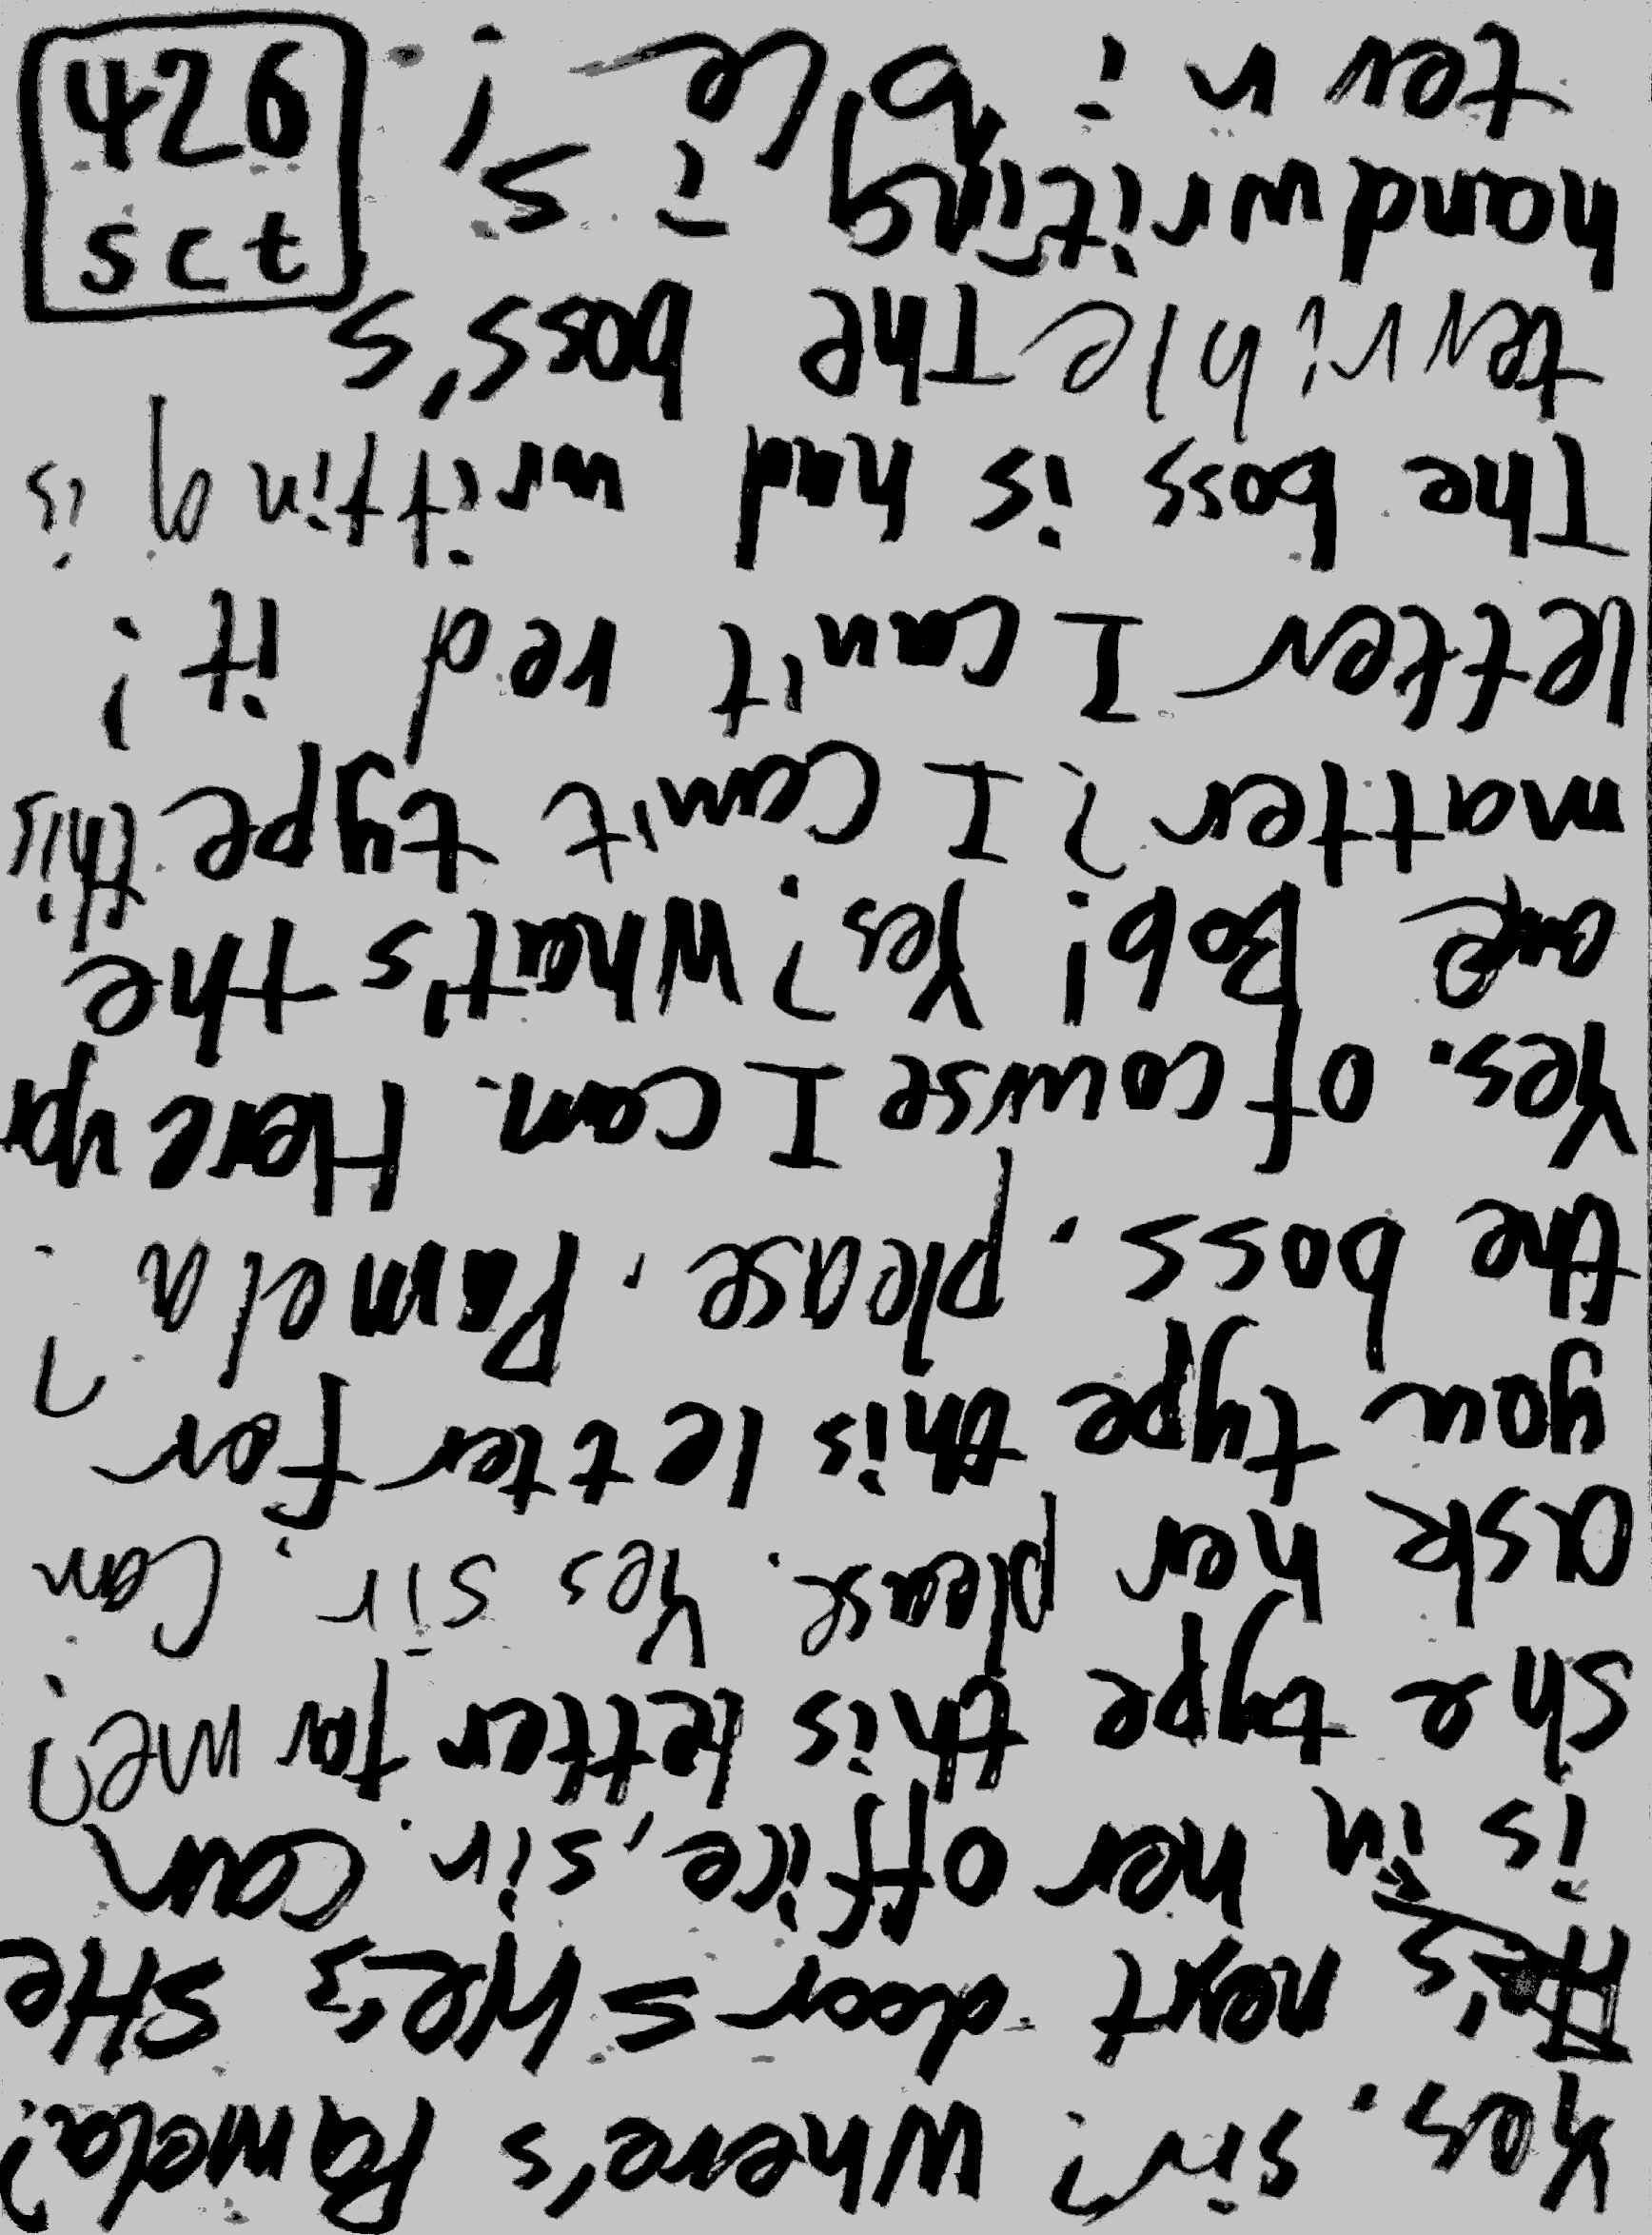 Yes. sir? Where's Pamela?
He's next door s Yes She
is in her office, sir. Can
she type this letter for me?
ask her please. Yes sir. Can
you type this letter for
the boss. please. Pamela?
Yes. of course I can. Here
Bob! Yes? What's the
matter? I can't type this
letter I can't red it!
The boss is hand writting is
terrible The boss's
handwriting is
terrible!
426
sct